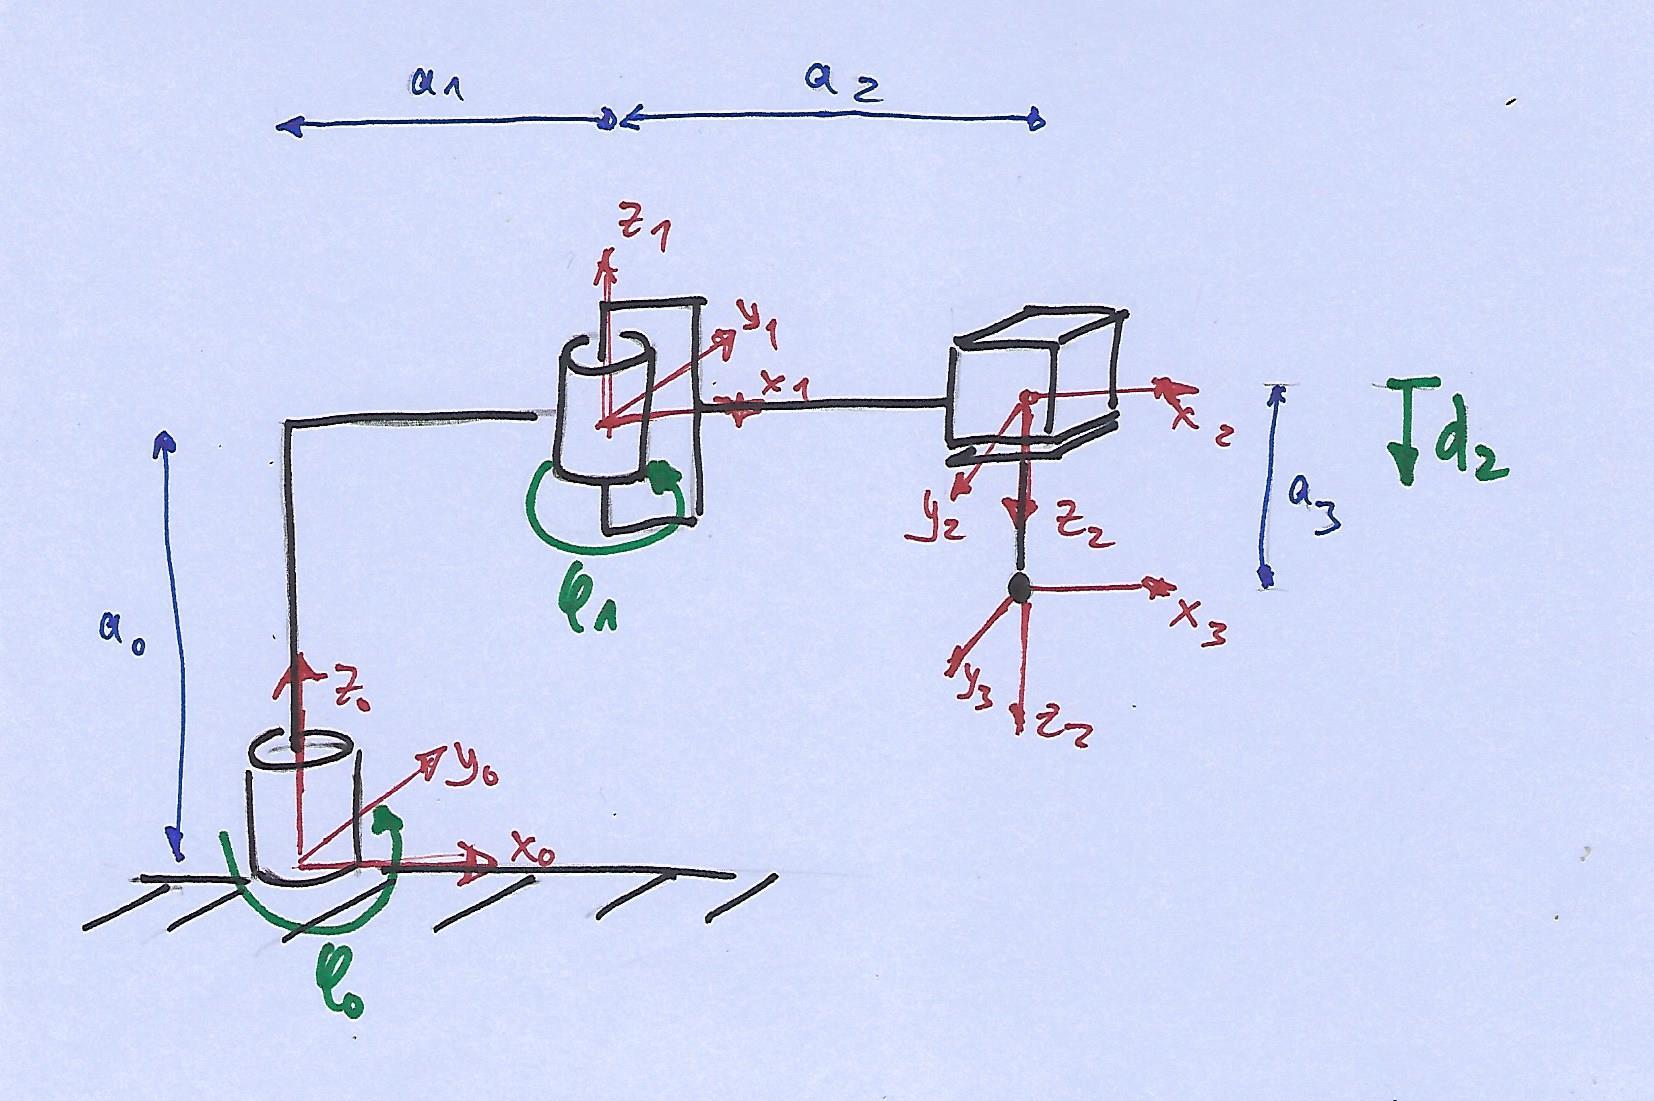 a1
a2
z1
y1
x1
x2
y2
z2
a3
d2
φ1
a0
x3
y3
z2
z0
y0
x0
φ0